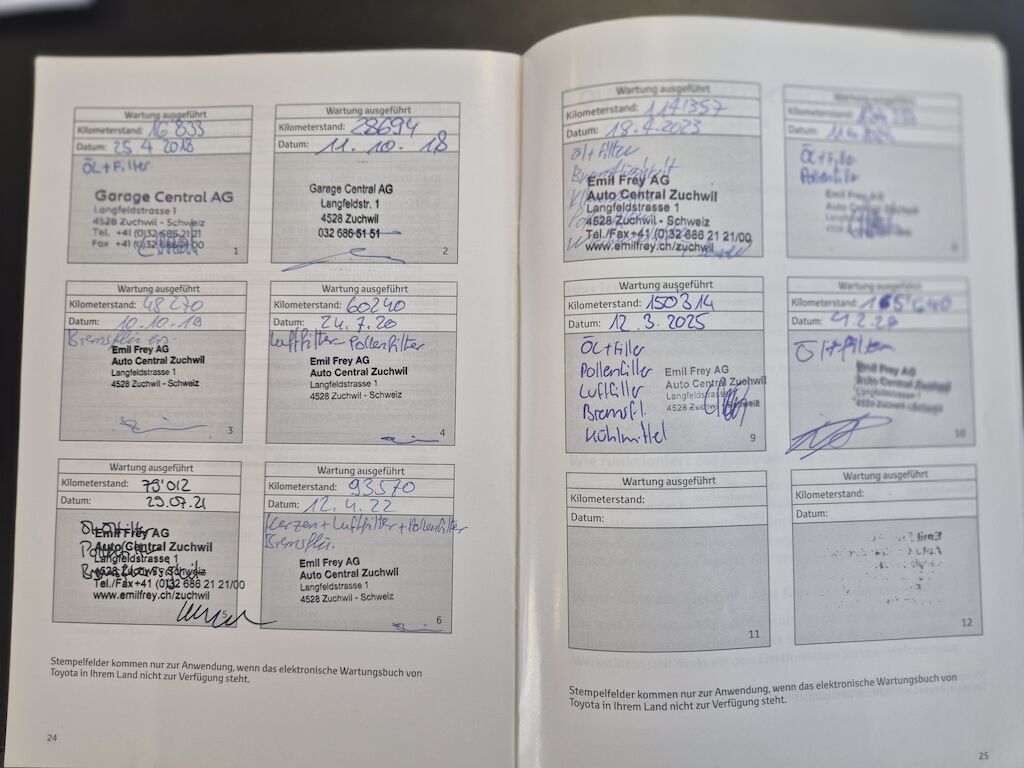 Wartung ausgeführt
Kilometerstand: 16'833
Datum: 25 4 2018
ÖL+Filter
Garage Central AG
Langfeldstrasse 1
4528 Zuchwil - Schweiz
Tel. +41 (0)32 686 21 21
Fax +41 (0)32 686 00
1
Wartung ausgeführt
Kilometerstand: 28694
Datum: 11. 10. 18
Garage Central AG
Langfeldstr. 1
4528 Zuchwil
032 686 51 51
2
Wartung ausgeführt
Kilometerstand: 48270
Datum: 10.10.19
Emil Frey AG
Auto Central Zuchwil
Langfeldstrasse 1
4528 Zuchwil - Schweiz
3
Wartung ausgeführt
Kilometerstand: 60240
Datum: 24. 7. 20
Luftfilter Pollenfilter
Emil Frey AG
Auto Central Zuchwil
Langfeldstrasse 1
4528 Zuchwil - Schweiz
4
Wartung ausgeführt
Kilometerstand: 79'012
Datum: 29.07.21
Emil Frey AG
Auto Central Zuchwil
Langfeldstrasse 1
4528 Zuchwil - Schweiz
Tel./Fax+41 (0)32 686 21 21/00
www.emilfrey.ch/zuchwil
5
Wartung ausgeführt
Kilometerstand: 93570
Datum: 12. 4. 22
Kerzen + Luftfilter + Pollenfilter
Bremsflü.
Emil Frey AG
Auto Central Zuchwil
Langfeldstrasse 1
4528 Zuchwil - Schweiz
6
Stempelfelder kommen nur zur Anwendung, wenn das elektronische Wartungsbuch von
Toyota in Ihrem Land nicht zur Verfügung steht.
24
Wartung ausgeführt
Kilometerstand: 114'357
Datum: 18.4.2023
Öl+Filter
Bremsflüssigkeit
Emil Frey AG
Auto Central Zuchwil
Langfeldstrasse 1
4528 Zuchwil - Schweiz
Tel./Fax+41 (0)32 686 21 21/00
www.emilfrey.ch/zuchwil
Wartung ausgeführt
Kilometerstand:
Datum:
ÖL+Filter
Pollenfilter
Emil Frey AG
Auto Central Zuchwil
8
Wartung ausgeführt
Kilometerstand: 150314
Datum: 12. 3. 2025
ÖL+Filter
Pollenfilter
Luftfilter
Bremsfl.
Kühlmittel
Emil Frey AG
Auto Central Zuchwil
Langfeldstrasse 1
4528 Zuchwil - Schweiz
9
Wartung ausgeführt
Kilometerstand: 165'640
Datum:
Öl+filter
Emil Frey AG
Auto Central Zuchwil
Langfeldstrasse 1
4528 Zuchwil - Schweiz
10
Wartung ausgeführt
Kilometerstand:
Datum:
11
Wartung ausgeführt
Kilometerstand:
Datum:
12
Stempelfelder kommen nur zur Anwendung, wenn das elektronische Wartungsbuch von
Toyota in Ihrem Land nicht zur Verfügung steht.
25